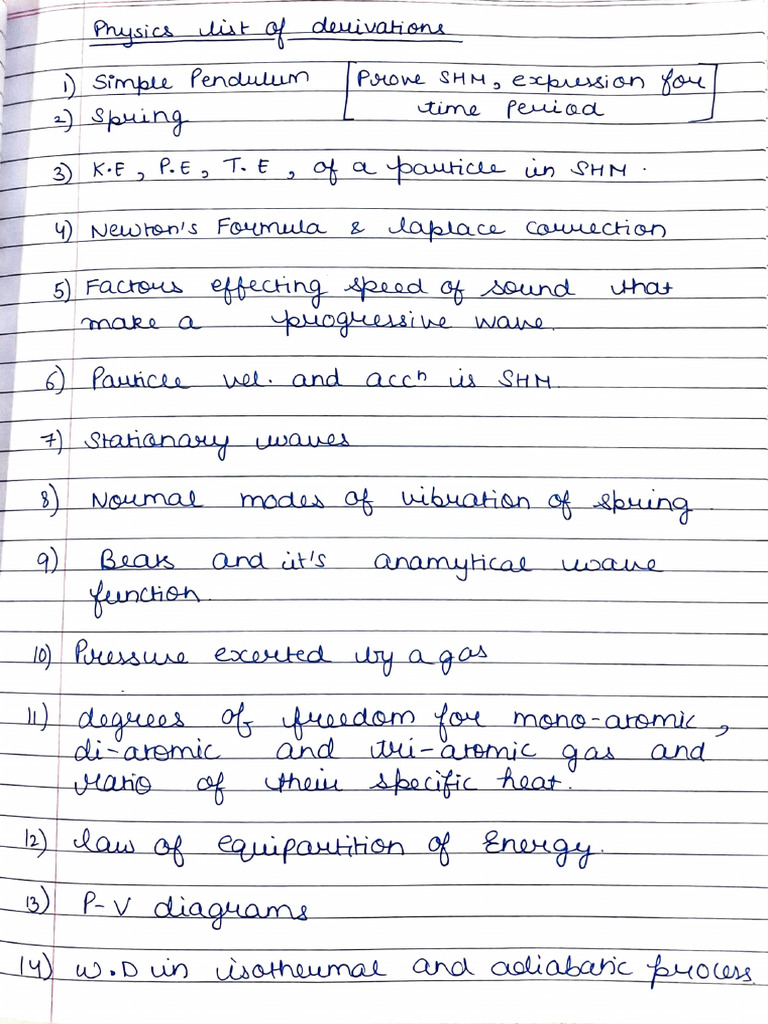 Physics list of derivations
1) Simple Pendulum [Prove SHM, expression for time Period]
2) Spring
3) K.E, P.E, T.E, of a particle in SHM.
4) Newton's Formula & laplace correction
5) Factors effecting speed of sound that
make a progressive wave.
6) Particle vel. and accn is SHM
7) Stationary waves
8) Normal modes of vibration of spring
9) Beats and it's anamytical wave
function.
10) Pressure exerted by a gas
11) degrees of freedom for mono-atomic,
di-atomic and tri-atomic gas and
ratio of their specific heat.
12) law of equipartition of Energy.
13) P-V diagrams
14) W.D in isothermal and adiabatic process.